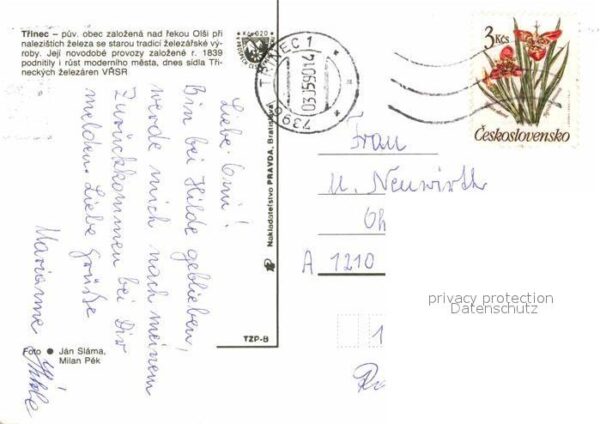 Třinec – pův. obec založená nad řekou Olší při
nalezištích železa se starou tradicí železářské vý-
roby. Její novodobé provozy založené r. 1839
podnítily i růst moderního města, dnes sídla Tři-
neckých železáren VŘSR
Kčs 0,20
TŘINEC 1
03.05.90 14
739 61
3 Kčs
Československo
Liebe Omi!
Bin bei Hilde geblieben,
werde mich nach meinem
Zurückkommen bei Dir
melden. Liebe Grüße
Marianne
Nakladateľstvo PRAVDA, Bratislava
TZP-B
Foto ● Ján Sláma,
Milan Pěk
Frau
M. Neuwirth
A 1210
privacy protection
Datenschutz